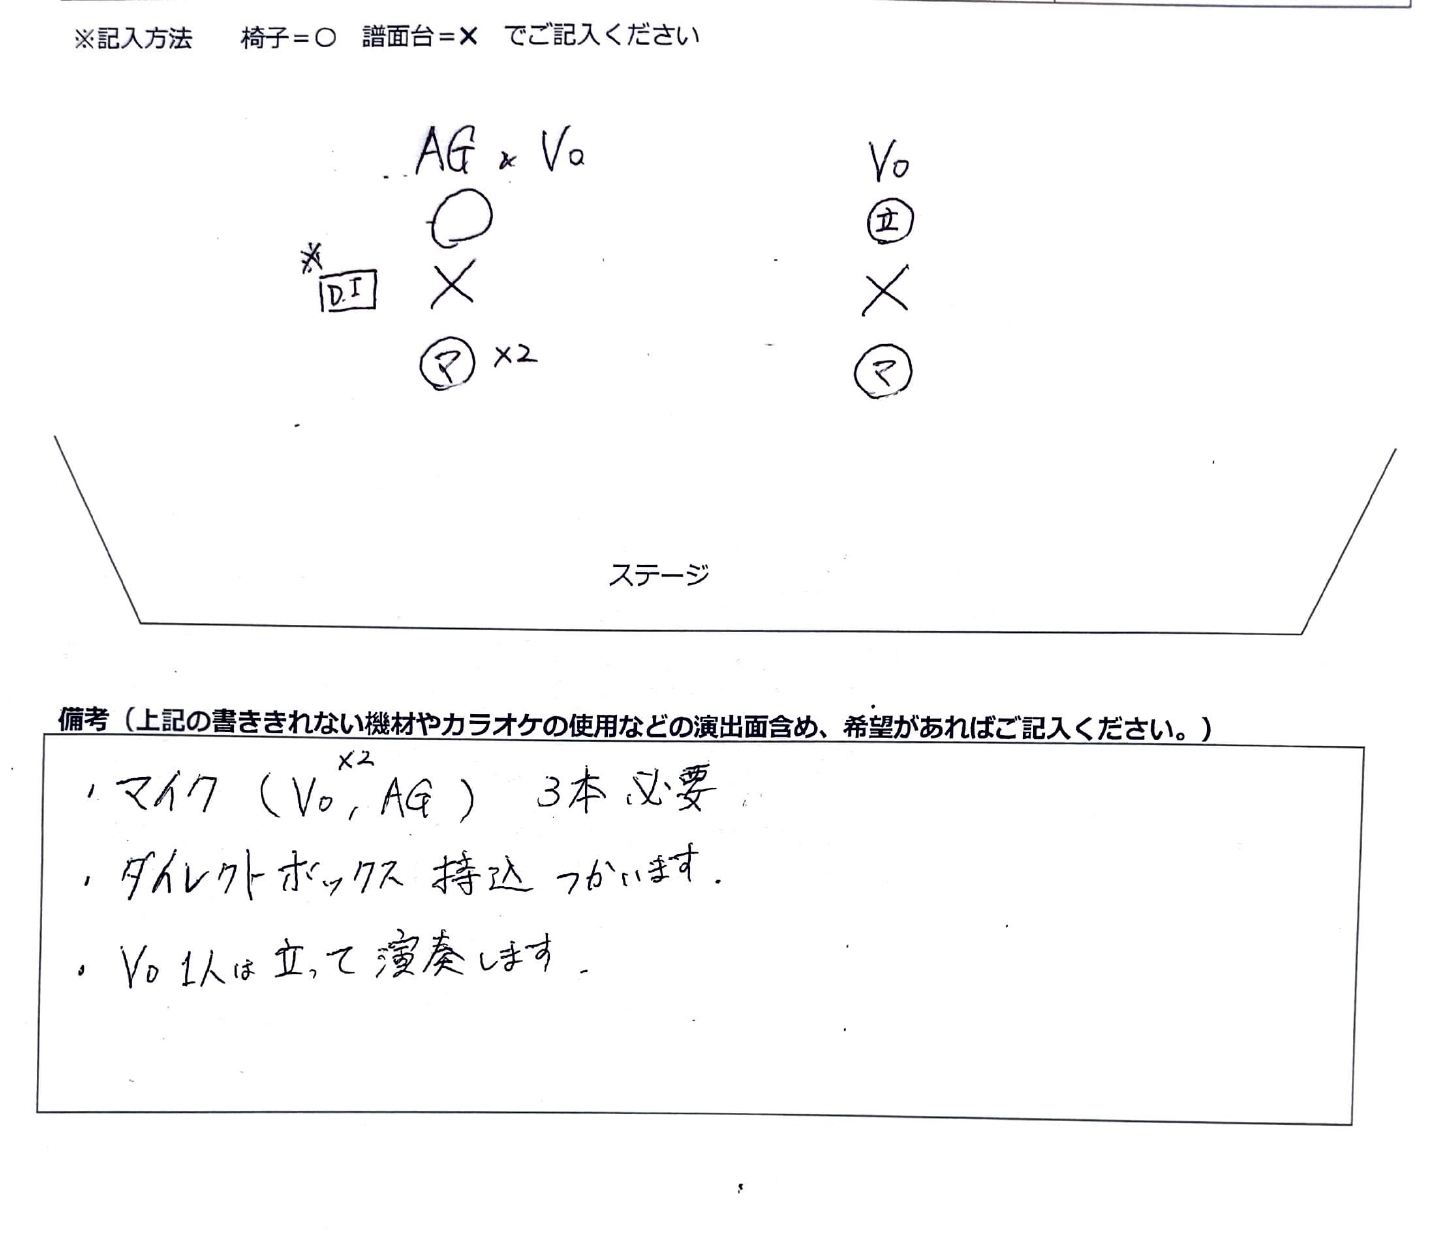 ※記入方法　椅子=○　譜面台=×　でご記入ください
AG × Vo
Vo
○
立
※
D.I
×
×
マ ×2
マ
ステージ
備考（上記の書ききれない機材やカラオケの使用などの演出面含め、希望があればご記入ください。）
×2
・マイク（Vo, AG） 3本 必要
・ダイレクトボックス 持込 つかいます.
・Vo 1人は 立って 演奏します.